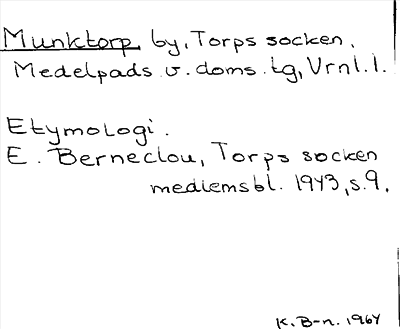 Munktorp, by, Torps socken,
Medelpads v. doms. tg, Vrnl. l.
Etymologi.
E. Berneclou, Torps socken
medlemsbl. 1943, s. 9.
K. B-n. 1964